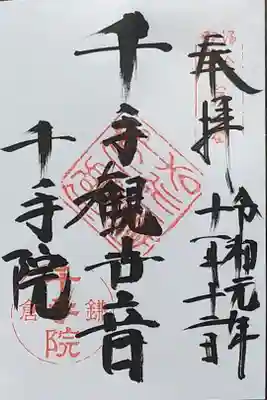 奉拝
令和元年
十一月十二日
千手観世音
千手院
鎌倉
千手院